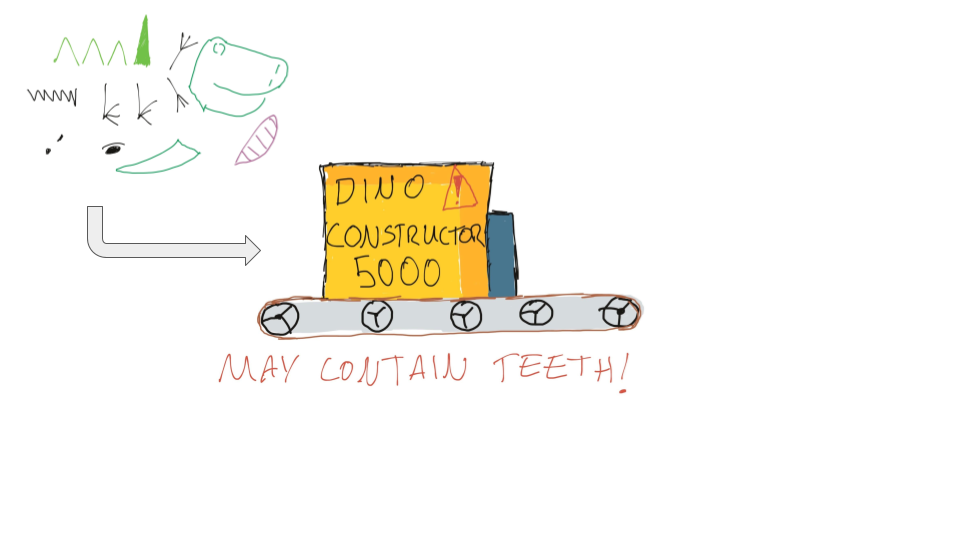 DINO
CONSTRUCTOR
5000
MAY CONTAIN TEETH!